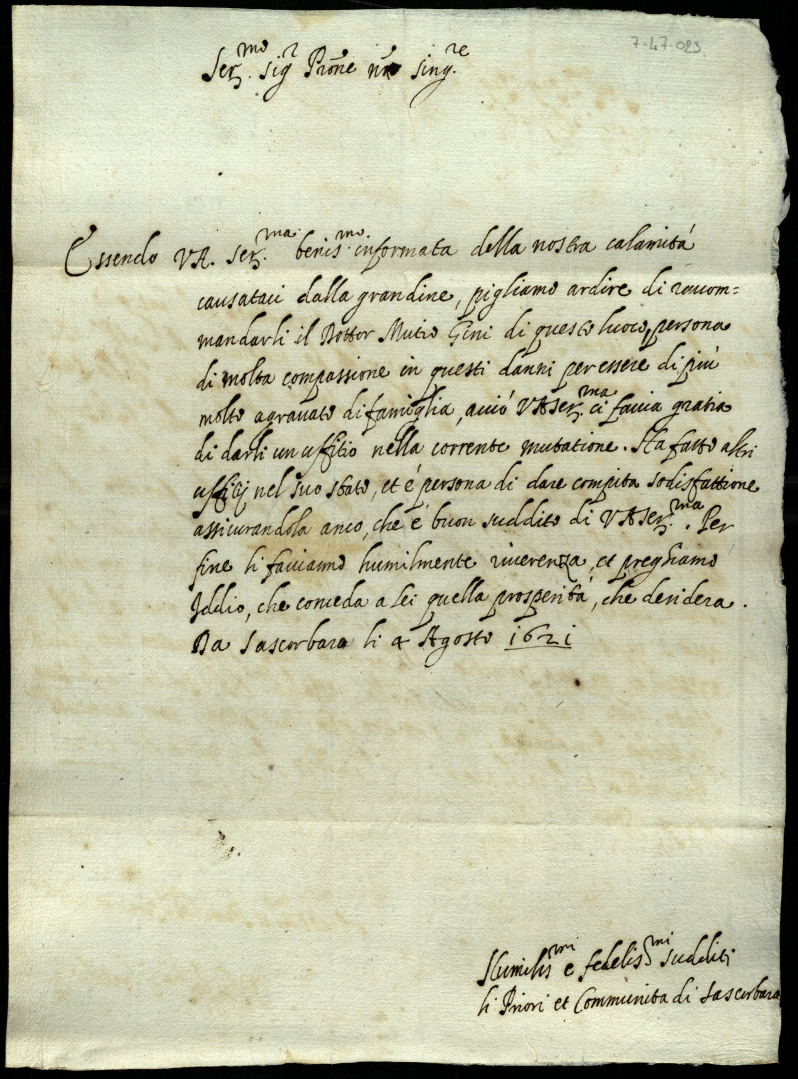 7-47-023
Ser.mo sig.r Prōne nr̄o sing.re
Essendo V A. Ser.ma benis.mo informata della nostra calamità
causataci dalla grandine, pigliamo ardire di racom=
mandarli il Dottor Mutio Gini di questo luoco, persona
di molta compassione in questi danni per essere di più
molto agravato di famiglia, acciò V A Ser.ma ci faccia gratia
di darli un uffitio nella corrente mutatione. Ha fatto altri
uffitij nel suo stato, et è persona di dare compita sodisfattione
assicurandola anco, che è buon suddito di V A Ser.ma. Per
fine li facciamo humilmente riverenza, et preghiamo
Iddio, che conceda a Lei quella prosperità, che desidera.
Da Sascorbaro li 4 Agosto 1621
Humilis.mi e fedelis.mi sudditi
li Priori et Communita di Sascorbaro